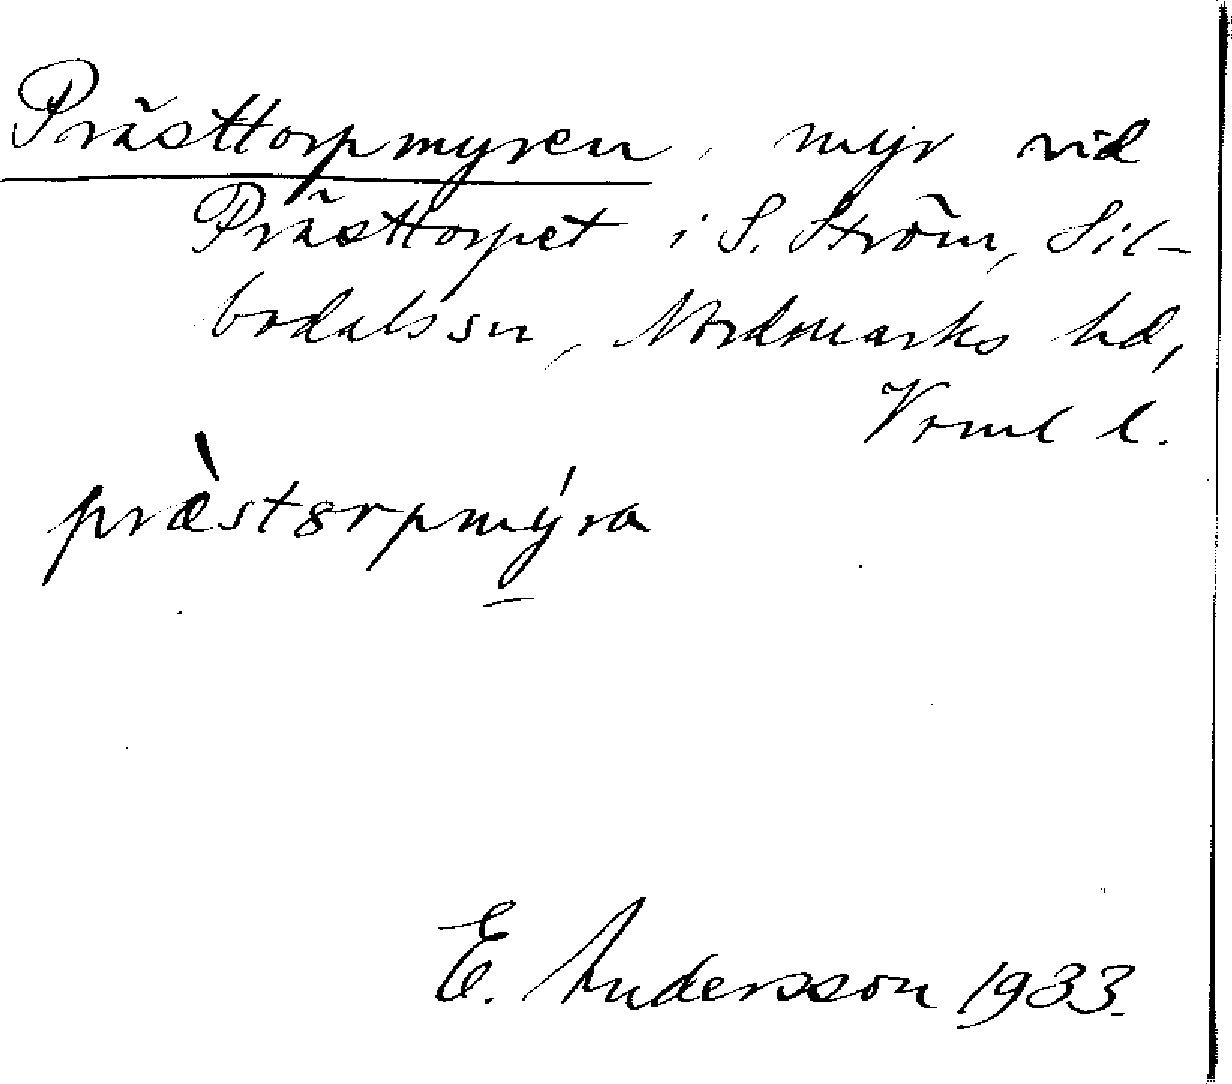 Prästtorpmyren, myr vid
Prästtorpet i S. Ström, Sil-
bodals sn, Nordmarks hd,
Vrml l.
præ̀stȣrpmýra
E. Andersson 1933.